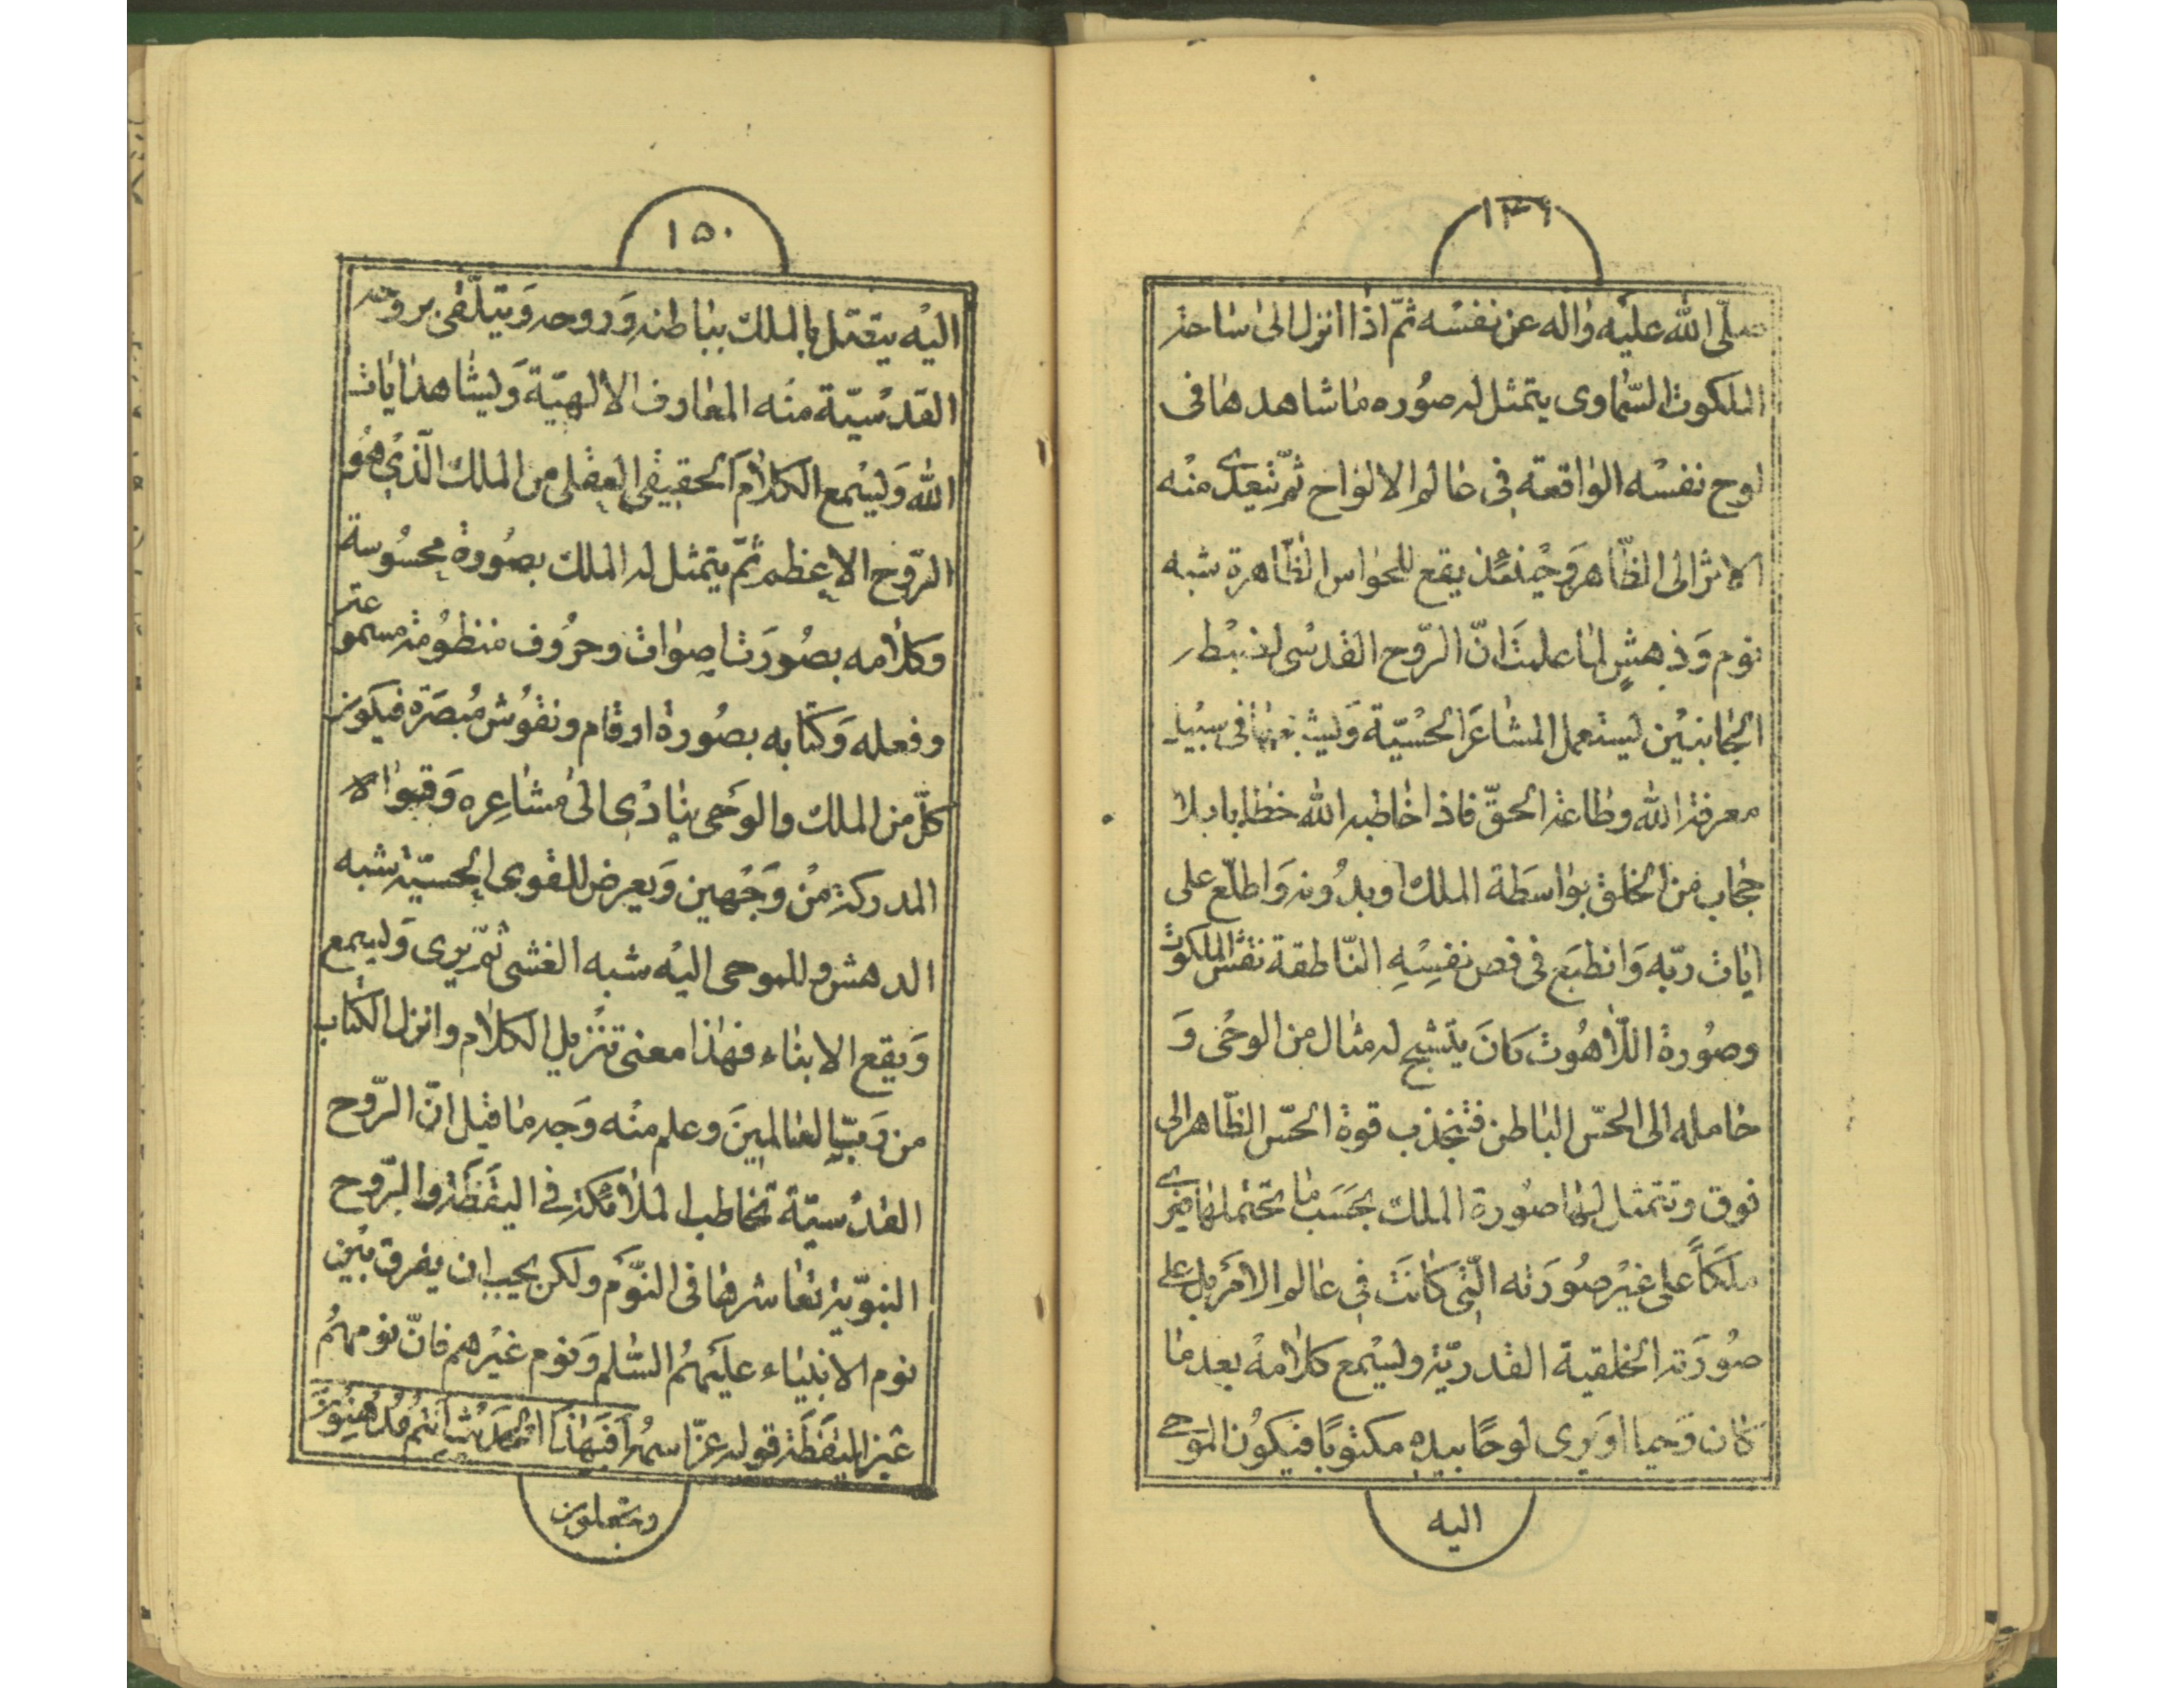 ١٣٩
صلّى الله عليه واله عن نفسه ثمّ اذا انزل الى ساحة
الملكوت السّماوى يتمثل له صوره ما شاهدها فى
لوح نفسه الواقعة فى عالم الالواح ثمّ يتعدى منه
الاثر الى الظّاهر وَحينئذ يقع للحواس الظّاهرة شبه
نوم وَدهشٍ لما علمتَ انّ الرّوح القدسى لضبط
الجانبيْن يستعمل المشاعَر الحسْيّة وَيشيّعها فى سبيل
معرفة الله وطاعة الحقّ فاذا خاطبه الله خطابا بلا
حجاب من الخلق بواسَطة الملك او بدُونه وَاطلّع على
ايات ربّه وَانطبَع فى فص نفسِهِ النّاطقة نقش الملكوت
وصُورة اللّاهُوت كانَ يتشبح له مثال من الوحْى وَ
حامله الى الحسّ الباطن فتنجذب قوة الحسّ الظّاهر الى
فوق وتتمثل لها صُورة الملك بحَسَب ما تحتملها فيرى
ملَكاً على غيْر صُورَته الّتى كانَت فى عالم الامَر بل على
صُورَته الخلقية القدريّة ويسْمع كلامهْ بعد ما
كان وَحيا اوَيرى لوحًا بيده مكتوبًا فيكوُن الموحى
اليه
١٥٠
اليْه يتصل بالملك بباطنه وَروحه وَيتلّقى بروحه
القدسْيّة منْه المعارف الالهيّة وَيشاهد ايات
الله وَيسْمع الكلامَ الحقيقى العقلى من الملك الّذىْ هُو
الرّوح الاعظم ثمّ يتمثل له الملك بصُورة محسُوسة
وَكلامه بصُورَت اصوات وحرُوف منظوُمة مسموعة
وفعله وَكتابه بصُورة ارقام ونقوُش مُبصَرة فيكَون
كلّ من الملك والوَحى يتادْى الىْ مشاعِره وَقواه
المدركة منْ وَجُهين وَيعرض للقوى الحسيّة شبه
الدهش وللموحى اليْه شبه الغشى ثمّ يرى وَيسمع
وَيقع الانباء فهٰذا معنى تنْزيل الكلام وانزل الكتاب
من رَبّ العالمينَ وعلم منْه وَجه ما قيل انّ الرّوح
القدْسيّة تخاطب الملائكة فى اليقَظَة والرّوح
النبوّية تعاشرها فى النّوَم ولكن يجب ان يفرق بيْن
نوم الانبياء عليَهمُ السّلم وَنوم غيْرهم فانّ نومهُم
عين اليَقَظَة قوله عزّ اسمهُ اَفَبِهٰذَا الحَدِيْثِ اَنتُمْ مُدْهِنُونَ
وتجعلون